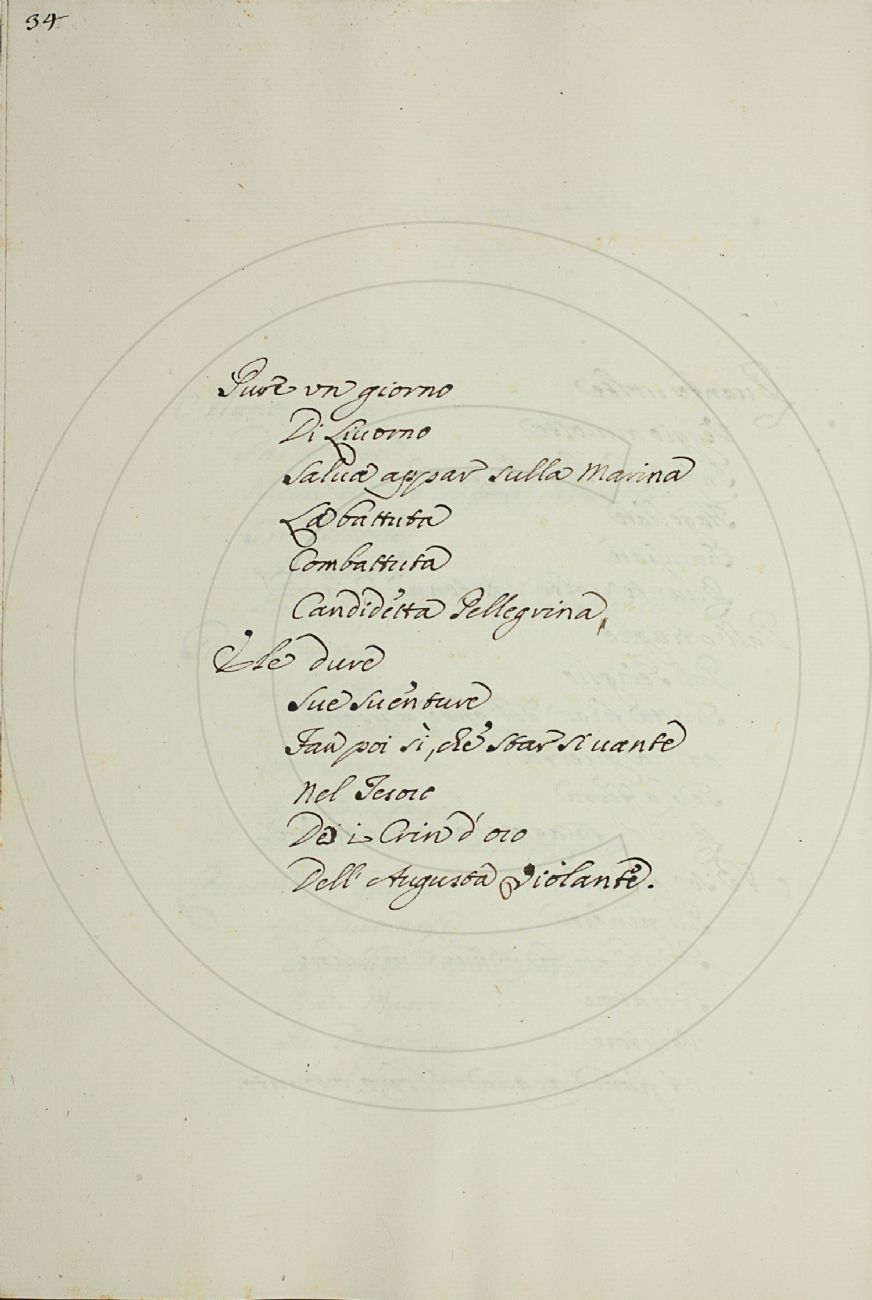 34
Pure vn giorno
Di Liuorno
Salua appar sulla Marina
La battuta
Combattuta
Candidetta Pellegrina,
E le dure
Sue suenture
Fan poi sì, che star si uante
Nel Tesoro
De i Crin d'oro
Dell'Augusta Violante.